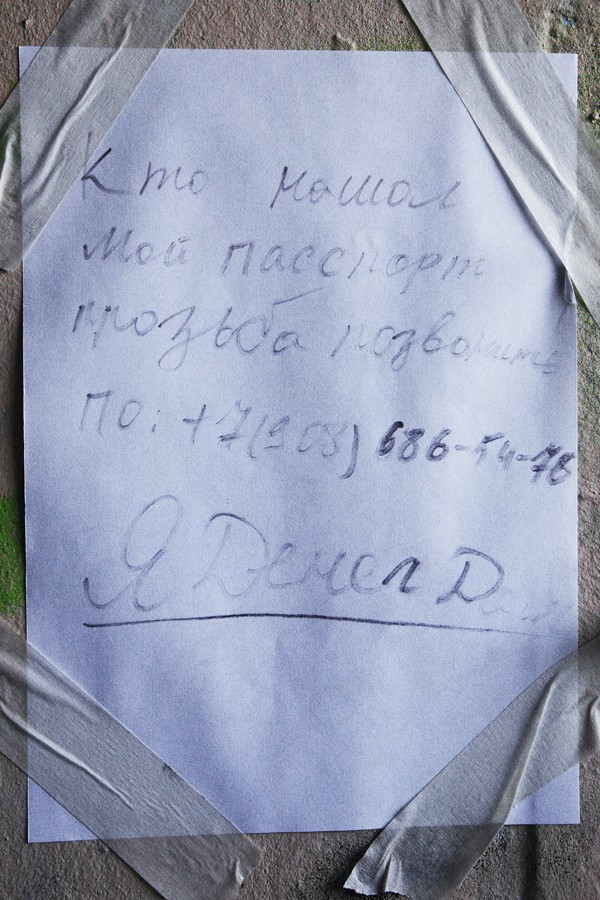 Кто нашол
Мой пасспорт
прозьба позвонить
По: +7(908) 686-54-78
Я Денег Дам